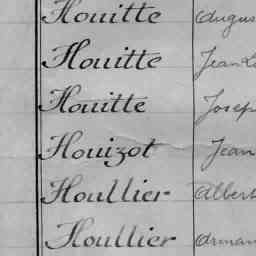 Houitte Augus
Houitte Jean L
Houitte Josep
Houizot Jean
Houllier Albert
Houllier Arman